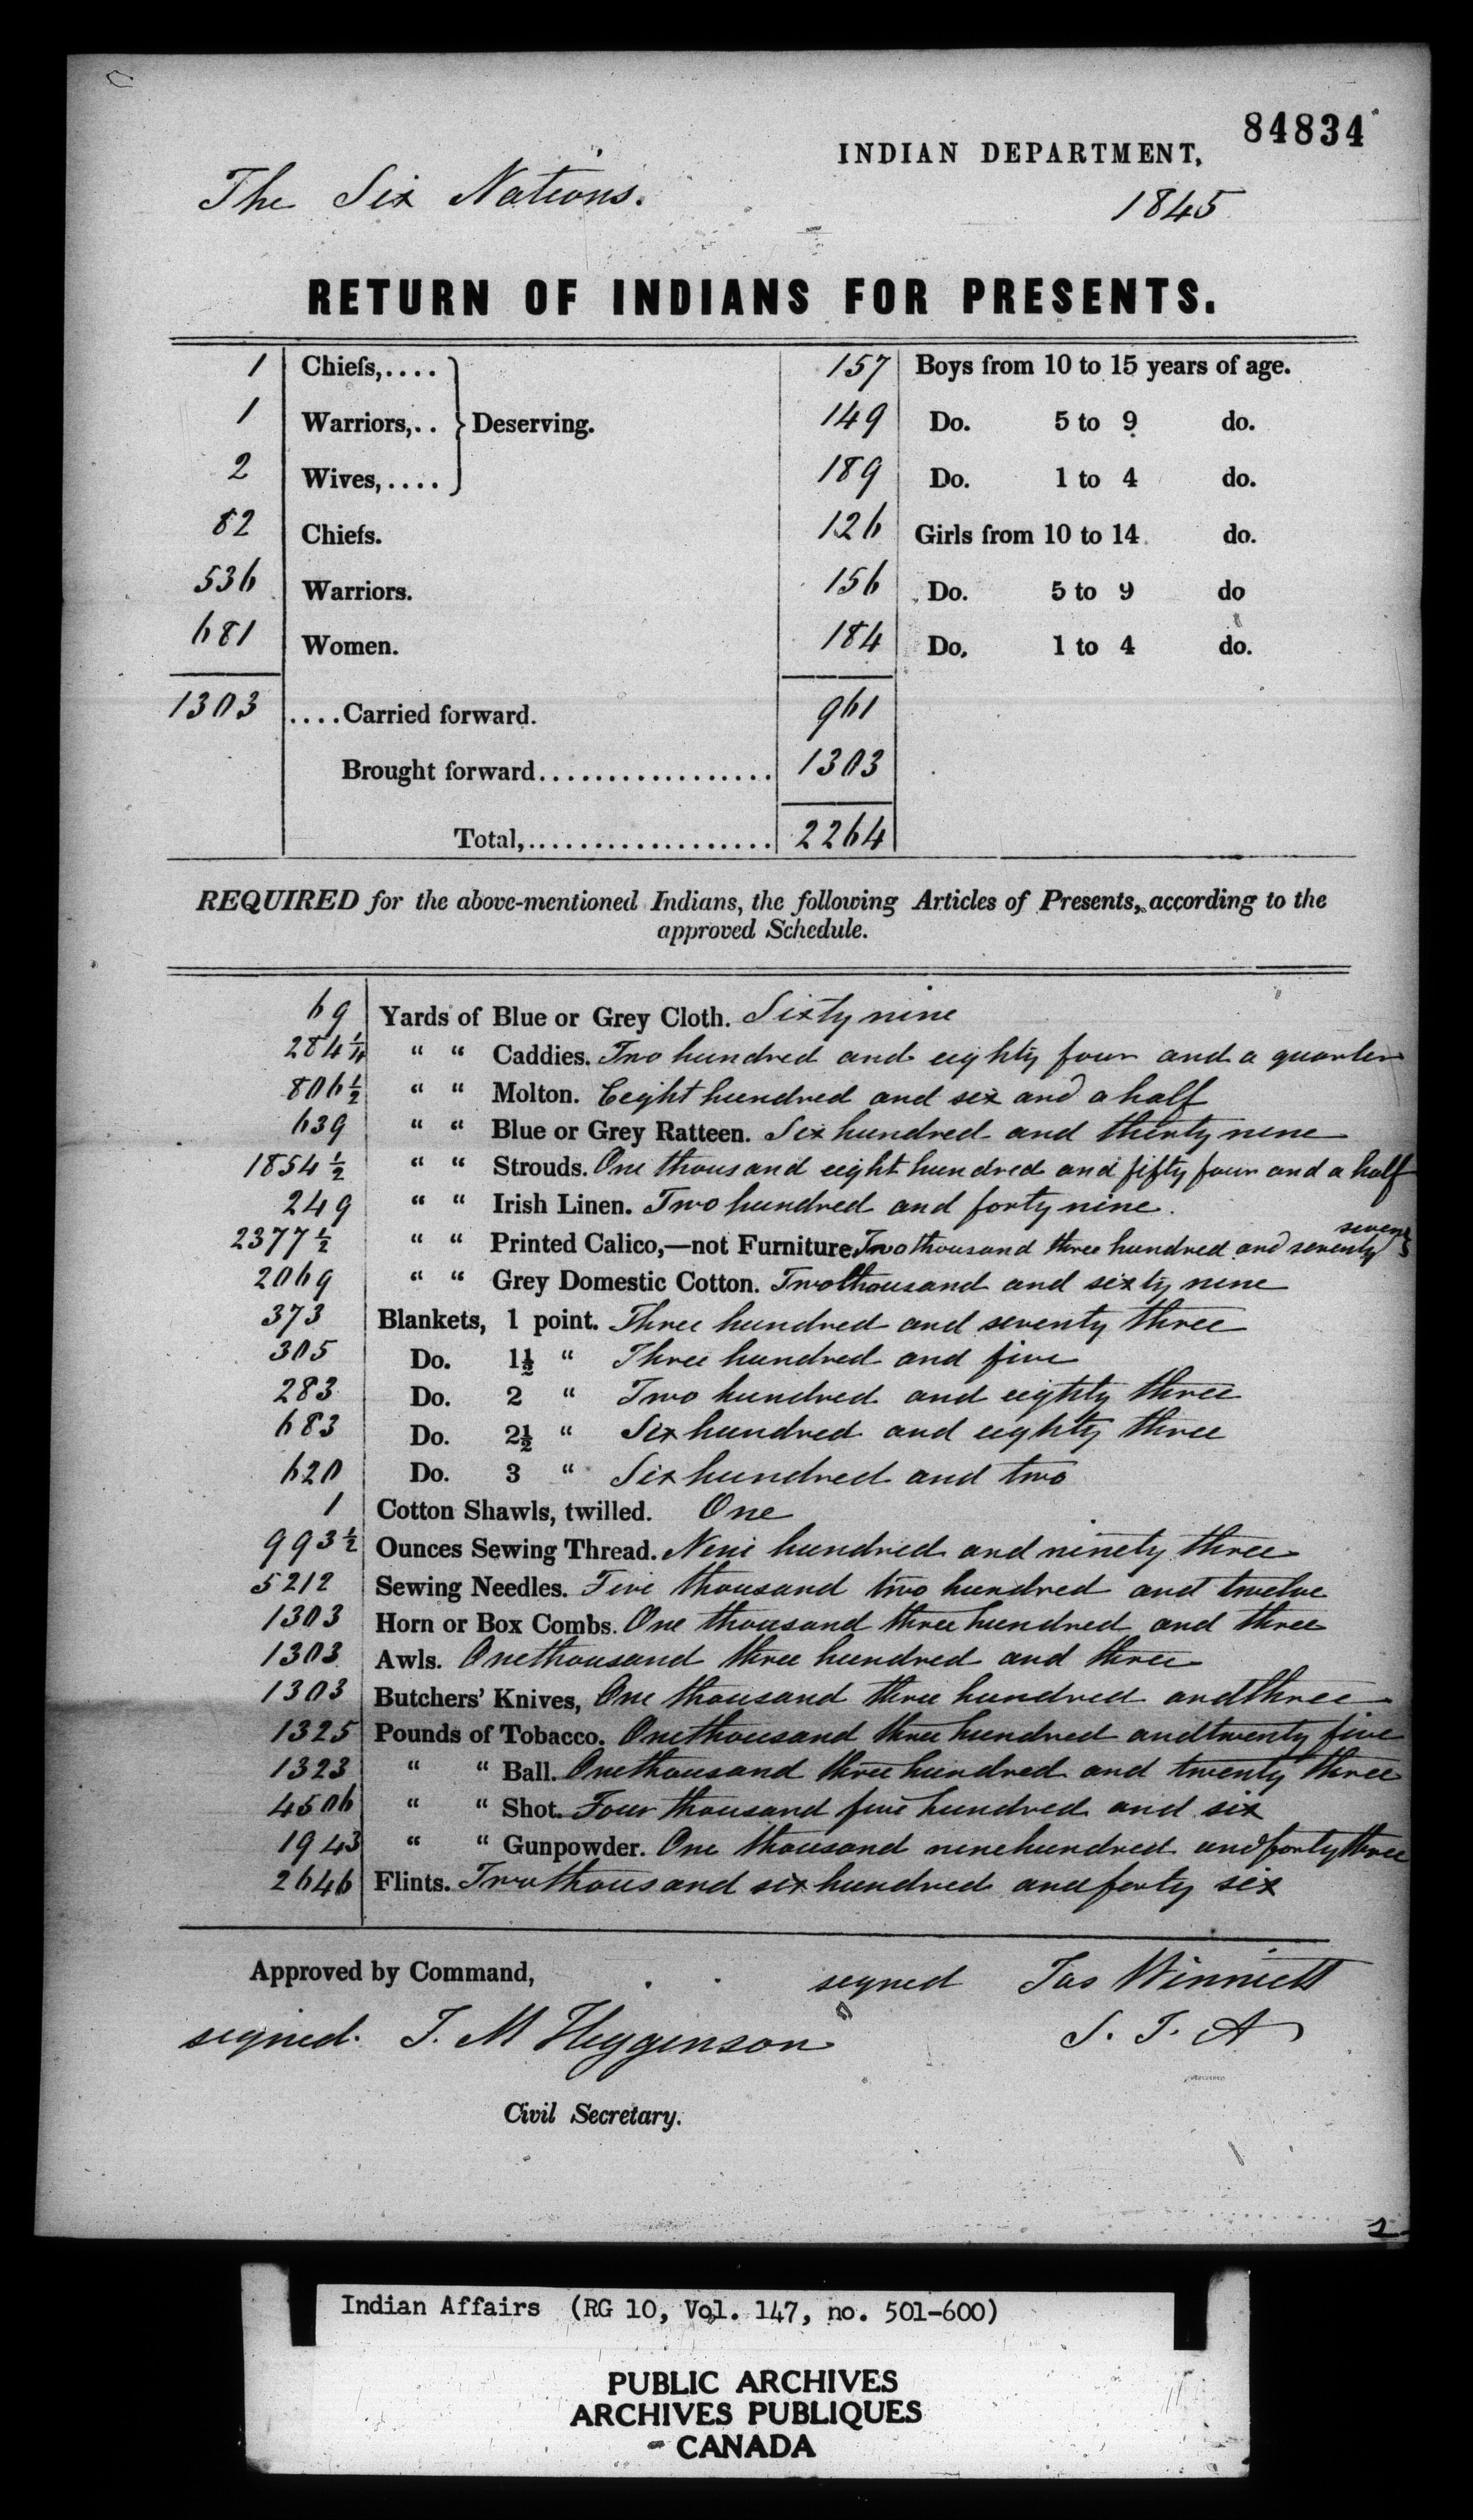 84834
INDIAN DEPARTMENT,
The Six Nations. 1845
RETURN OF INDIANS FOR PRESENTS.
1 Chiefs,.... } Deserving. 157 Boys from 10 to 15 years of age.
1 Warriors,.. 149 Do. 5 to 9 do.
2 Wives,.... 189 Do. 1 to 4 do.
82 Chiefs. 126 Girls from 10 to 14 do.
536 Warriors. 156 Do. 5 to 9 do
681 Women. 184 Do. 1 to 4 do.
1303 ....Carried forward. 961
Brought forward.................. 1303
Total,................... 2264
REQUIRED for the above-mentioned Indians, the following Articles of Presents, according to the
approved Schedule.
69 Yards of Blue or Grey Cloth. Sixty nine
284 1/4 “ “ Caddies. Two hundred and eighty four and a quarter
806 1/2 “ “ Molton. Eeight hundred and six and a half
639 “ “ Blue or Grey Ratteen. Six hundred and thirty nine
1854 1/2 “ “ Strouds. One thousand eight hundred and fifty four and a half
249 “ “ Irish Linen. Two hundred and forty nine.
2377 1/2 “ “ Printed Calico,—not Furniture. Two thousand three hundred and seventy seven
2069 “ “ Grey Domestic Cotton. Two thousand and sixty nine
373 Blankets, 1 point. Three hundred and seventy three
305 Do. 1½ “ Three hundred and five
283 Do. 2 “ Two hundred and eighty three
683 Do. 2½ “ Six hundred and eighty three
620 Do. 3 “ Six hundred and two
1 Cotton Shawls, twilled. One
993 1/2 Ounces Sewing Thread. Nine hundred and ninety three
5212 Sewing Needles. Five thousand two hundred and twelve
1303 Horn or Box Combs. One thousand three hundred and three
1303 Awls. One thousand three hundred and three
1303 Butchers’ Knives, One thousand three hundred and three
1325 Pounds of Tobacco. One thousand three hundred and twenty five
1323 “ “ Ball. One thousand three hundred and twenty three
4506 “ “ Shot. Four thousand five hundred and six
1943 “ “ Gunpowder. One thousand nine hundred and forty three
2646 Flints. Two thousand six hundred and forty six
Approved by Command, signed Jas Winniett
signed. J. M Higginson S. I. A
Civil Secretary.
Indian Affairs (RG 10, Vol. 147, no. 501-600)
PUBLIC ARCHIVES
ARCHIVES PUBLIQUES
CANADA